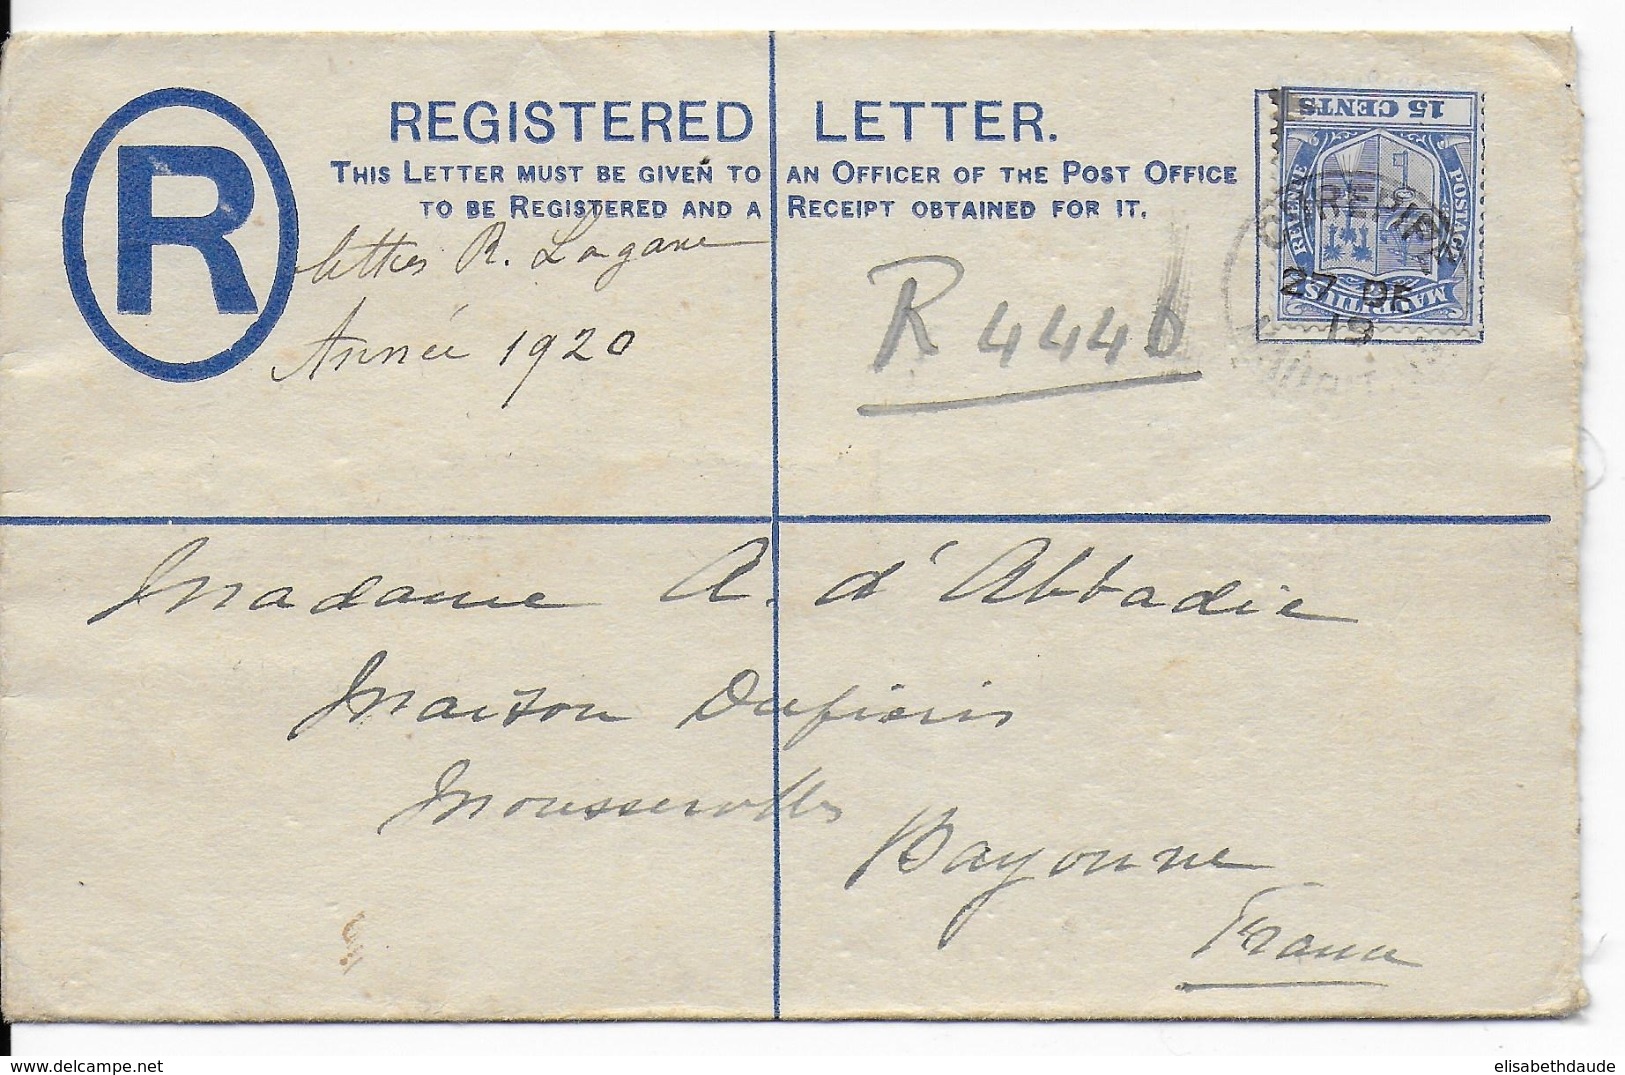 R
REGISTERED LETTER.
THIS LETTER MUST BE GIVEN TO AN OFFICER OF THE POST OFFICE
TO BE REGISTERED AND A RECEIPT OBTAINED FOR IT.
15 CENTS
REVENUE
POSTAGE
MAURITIUS
CUREPIPE
27 DE
19
MAURITIUS
lettres R. Lagane
Année 1920
R 4446
Madame A. d'Abbadie
Maison
Mousserolles
Bayonne
France
elisabethdaude